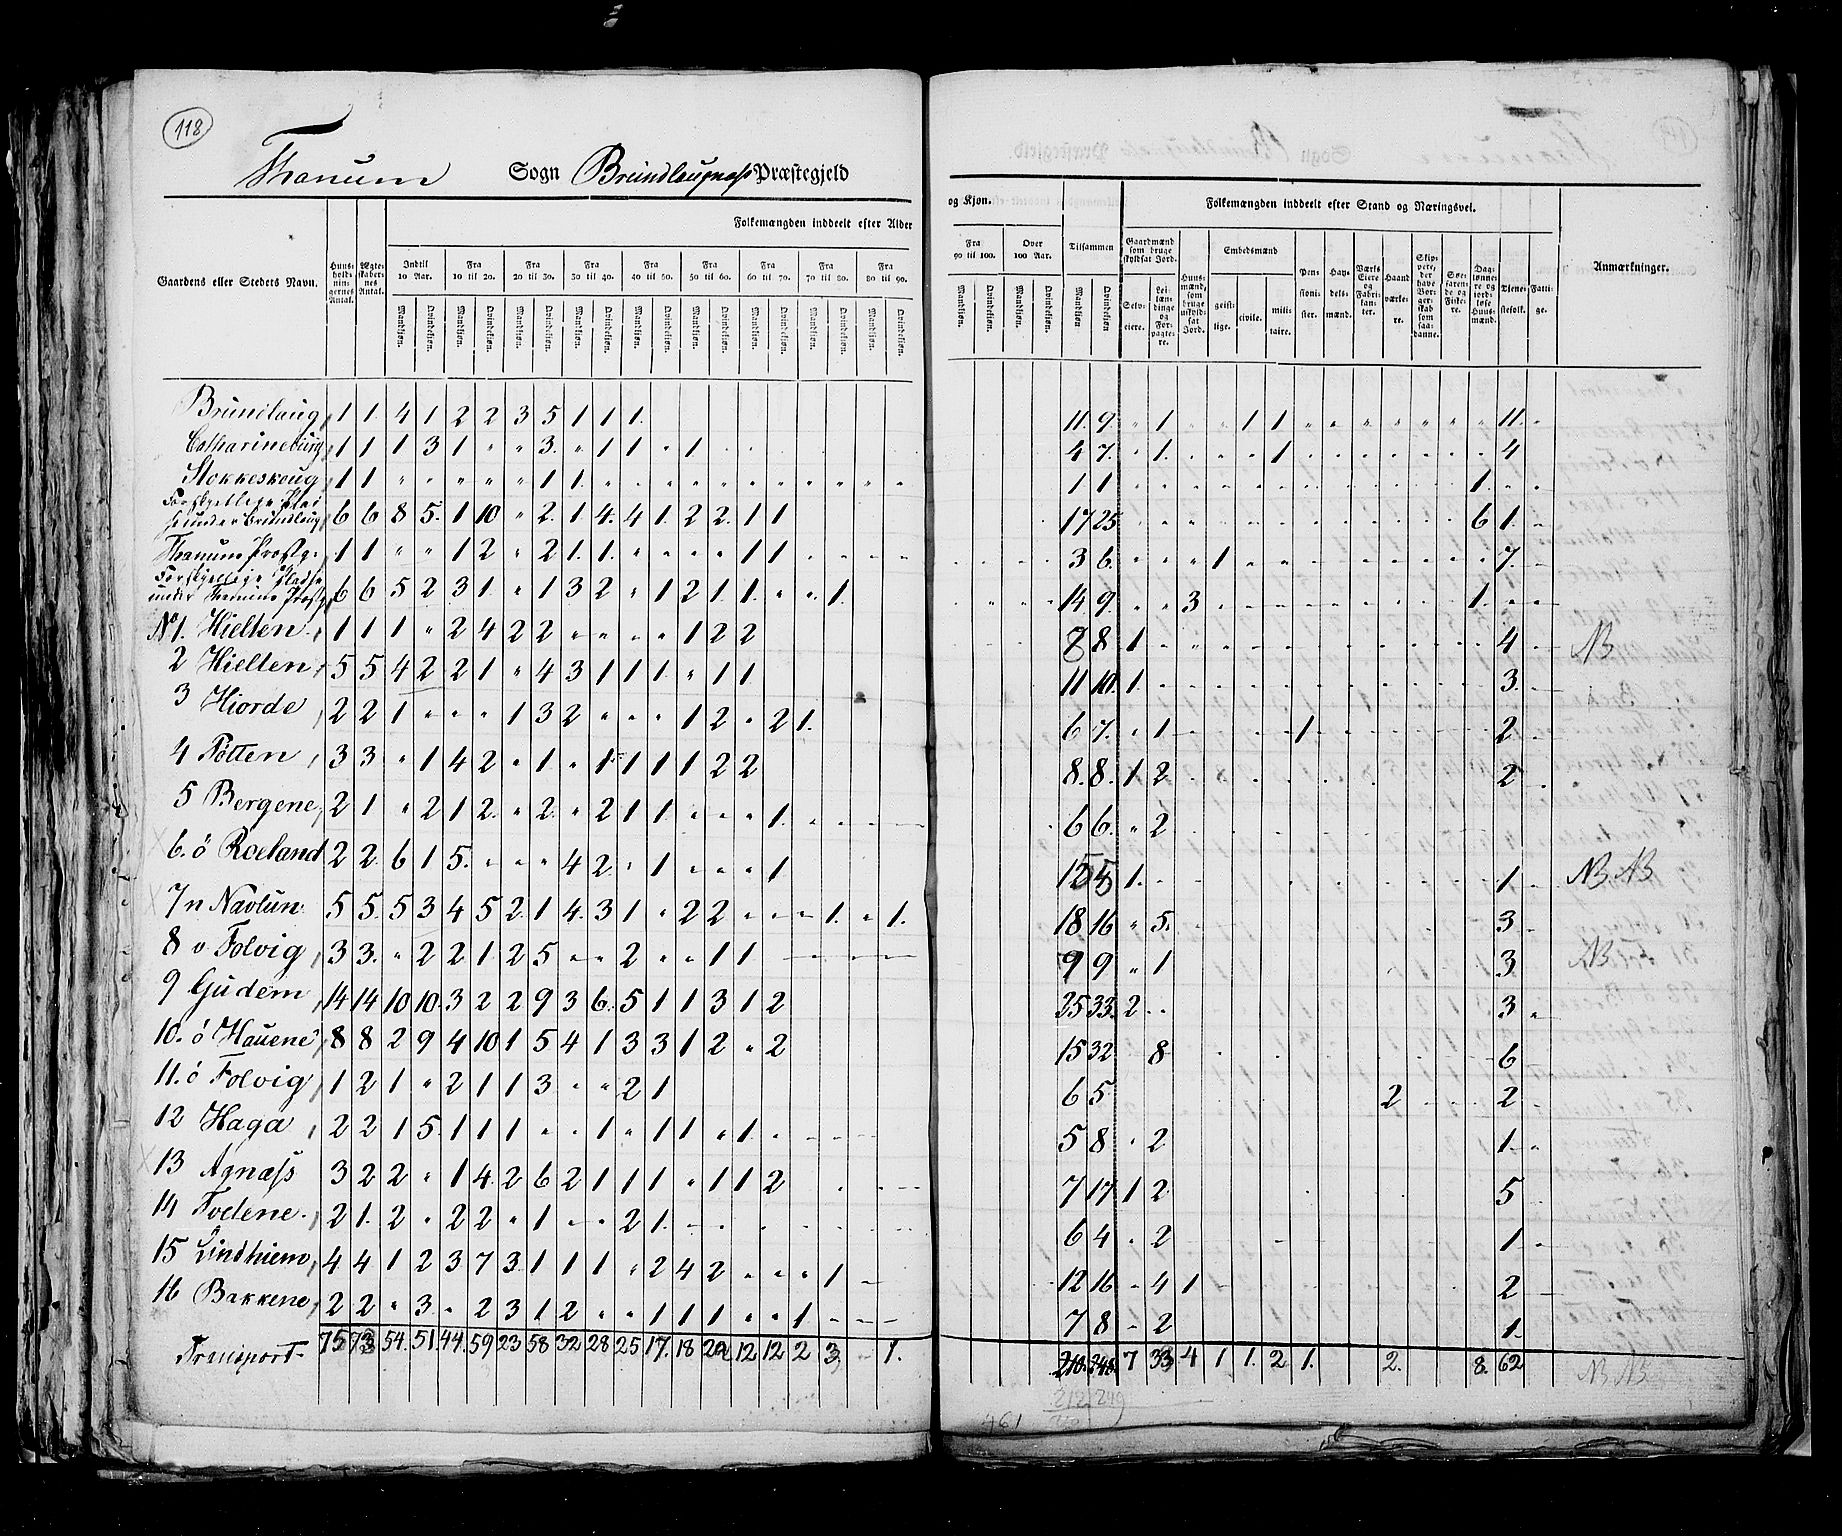 118
Thanum Sogn Brundlaugnæss Præstegjeld
Gaardens eller Stedets Navn.
Huus-holdnin-gernes Antal.
Ægte-skaber-nes Antal.
Folkemængden inddeelt efter Alder
Indtil 10 Aar.
Fra 10 til 20.
Fra 20 til 30.
Fra 30 til 40.
Fra 40 til 50.
Fra 50 til 60.
Fra 60 til 70.
Fra 70 til 80.
Fra 80 til 90.
Mandkiøn. Qvindekiøn. Mandkiøn. Qvindekiøn. Mandkiøn. Qvindekiøn. Mandkiøn. Qvindekiøn. Mandkiøn. Qvindekiøn. Mandkiøn. Qvindekiøn. Mandkiøn. Qvindekiøn. Mandkiøn. Qvindekiøn. Mandkiøn. Qvindekiøn.
og Kjøn.
Fra 90 til 100.
Over 100 Aar.
Tilsammen
Mandkiøn. Qvindekiøn. Mandkiøn. Qvindekiøn. Mandkiøn. Qvindekiøn.
Folkemængden inddeelt efter Stand og Næringsvei.
Gaardmænd som bruge skyldsat Jord.
Selv-eiere.
Lei-lændinge og For-pagte-re.
Huus-mænd, som bruge uskyldsat Jord.
Embedsmænd
geist-lige.
civile.
mili-taire.
Pen-sioni-ster.
Han-dels-mænd.
Værks Eiere og Fabri-kan-ter.
Haand værke-re.
Skip-pere, der have Bor-ger-skab som saa-danne.
Søe-faren-de og Fiske-re.
Dag-lønne-re og jord-løse Huus-mænd.
Tiene-stefolk.
Fatti-ge.
Anmærkninger.
Brundlaug 1 1 4 1 2 2 3 5 1 1 1 11. 9 " 1 " " 1 1 " " " " " " " 11.
Catharineburg 1 1 1 3 1 " " 3. " 1 1 " 1 4 7. " 1. " " " 1 4
Stokkeskoug 1 1 " " " " " 1 1. 1 1 1.
Forskjellige Plad-se under Brundlaug 6 6 8 5. 1 10 " 2. 1 4. 4 1. 2 2. 1 1 17 25 6 1.
Thanum Præstg. 1 1 " " 1 2 " 2 1. 1. " " " " 1 1 3 6. " " " 1 7.
Forskjellige Pladse under Thanum Præstg 6 6 5 2 3 1. " 1 3 2 " 1 2 1. 1. " " 1. 14. 9. " " 3 1.
No 1. Hielten 1 1 1 " 2 4 2 2 " " " " 1 2 2 8 8 1 4 NB
2 Hielten 5 5 4 2 2 1 " 4 3 1 1 1 " 1 1 11 10. 1. 3.
3 Hiorde 2 2 1 " " " 1 3 2 " " " 1 2 " 2 1. 6 7. " 1 1 2
4 Tøtten 3 3 " 1 4 2 " 1 " 1 1 1 1 2 2 8. 8. 1 2 2
5 Bergene 2 1 " 2 1 2. " 2. " 2 1 1 " " " 1. 6 6. " 2
6. ö Roeland 2 2. 6 1 5. " " " 4 2 " 1 " " " 1 1. 1 NB NB
7 n Navlun 5 5. 5 3 4 5 2. 1 4. 3 1 " 2 2 " " " 1. " 1. 18. 16 " 5. 3
8 v Folvig 3 3. " 2 2 1 2 5 " " 2 " " 1 1 9 9 " 1 3 NB
9 Gudem 14 14 10 10. 3 2 2 9 3 6. 5 1 1 3 1 2 25 33. 2 3
10. ö Hauene 8 8 2 9 4 10 1 5 4 1 3 3 1 2 " 2 15 32 8 6
11. ö Folvig 1 2 1 " 2 1 1 3 " " 2 1 6 5 2 2
12 Haga 2 2 1 5. 1 1 1 " " 1 " 1 1 " 1 5 8 " 2 1.
13 Agnæss 3 2 2 " 1 4. 2 6 2 1 1 1 " 1 1 2 7 17 1 2 5
14 Fodene 2 1. 2 " 2 2 " 1 " " 2 1. 6 4 " 2 1
15 Lindhiem 4 4 1 2 3 7 3. 1 1 1 " 2 4 2 " " " 1 12 16 " 4 1 2
16 Bakkene 2 2 " 3. " 2 3 1 2 " " 1 1 1 " " 1 7 8 " 2 1.
Transport 75 73 54. 51. 44. 59 23 58 32 28 25 17. 18 12 12 2 3 1. 7 33 4 1 1. 2 1. 2. 8. 62 NB NB
212 249
461